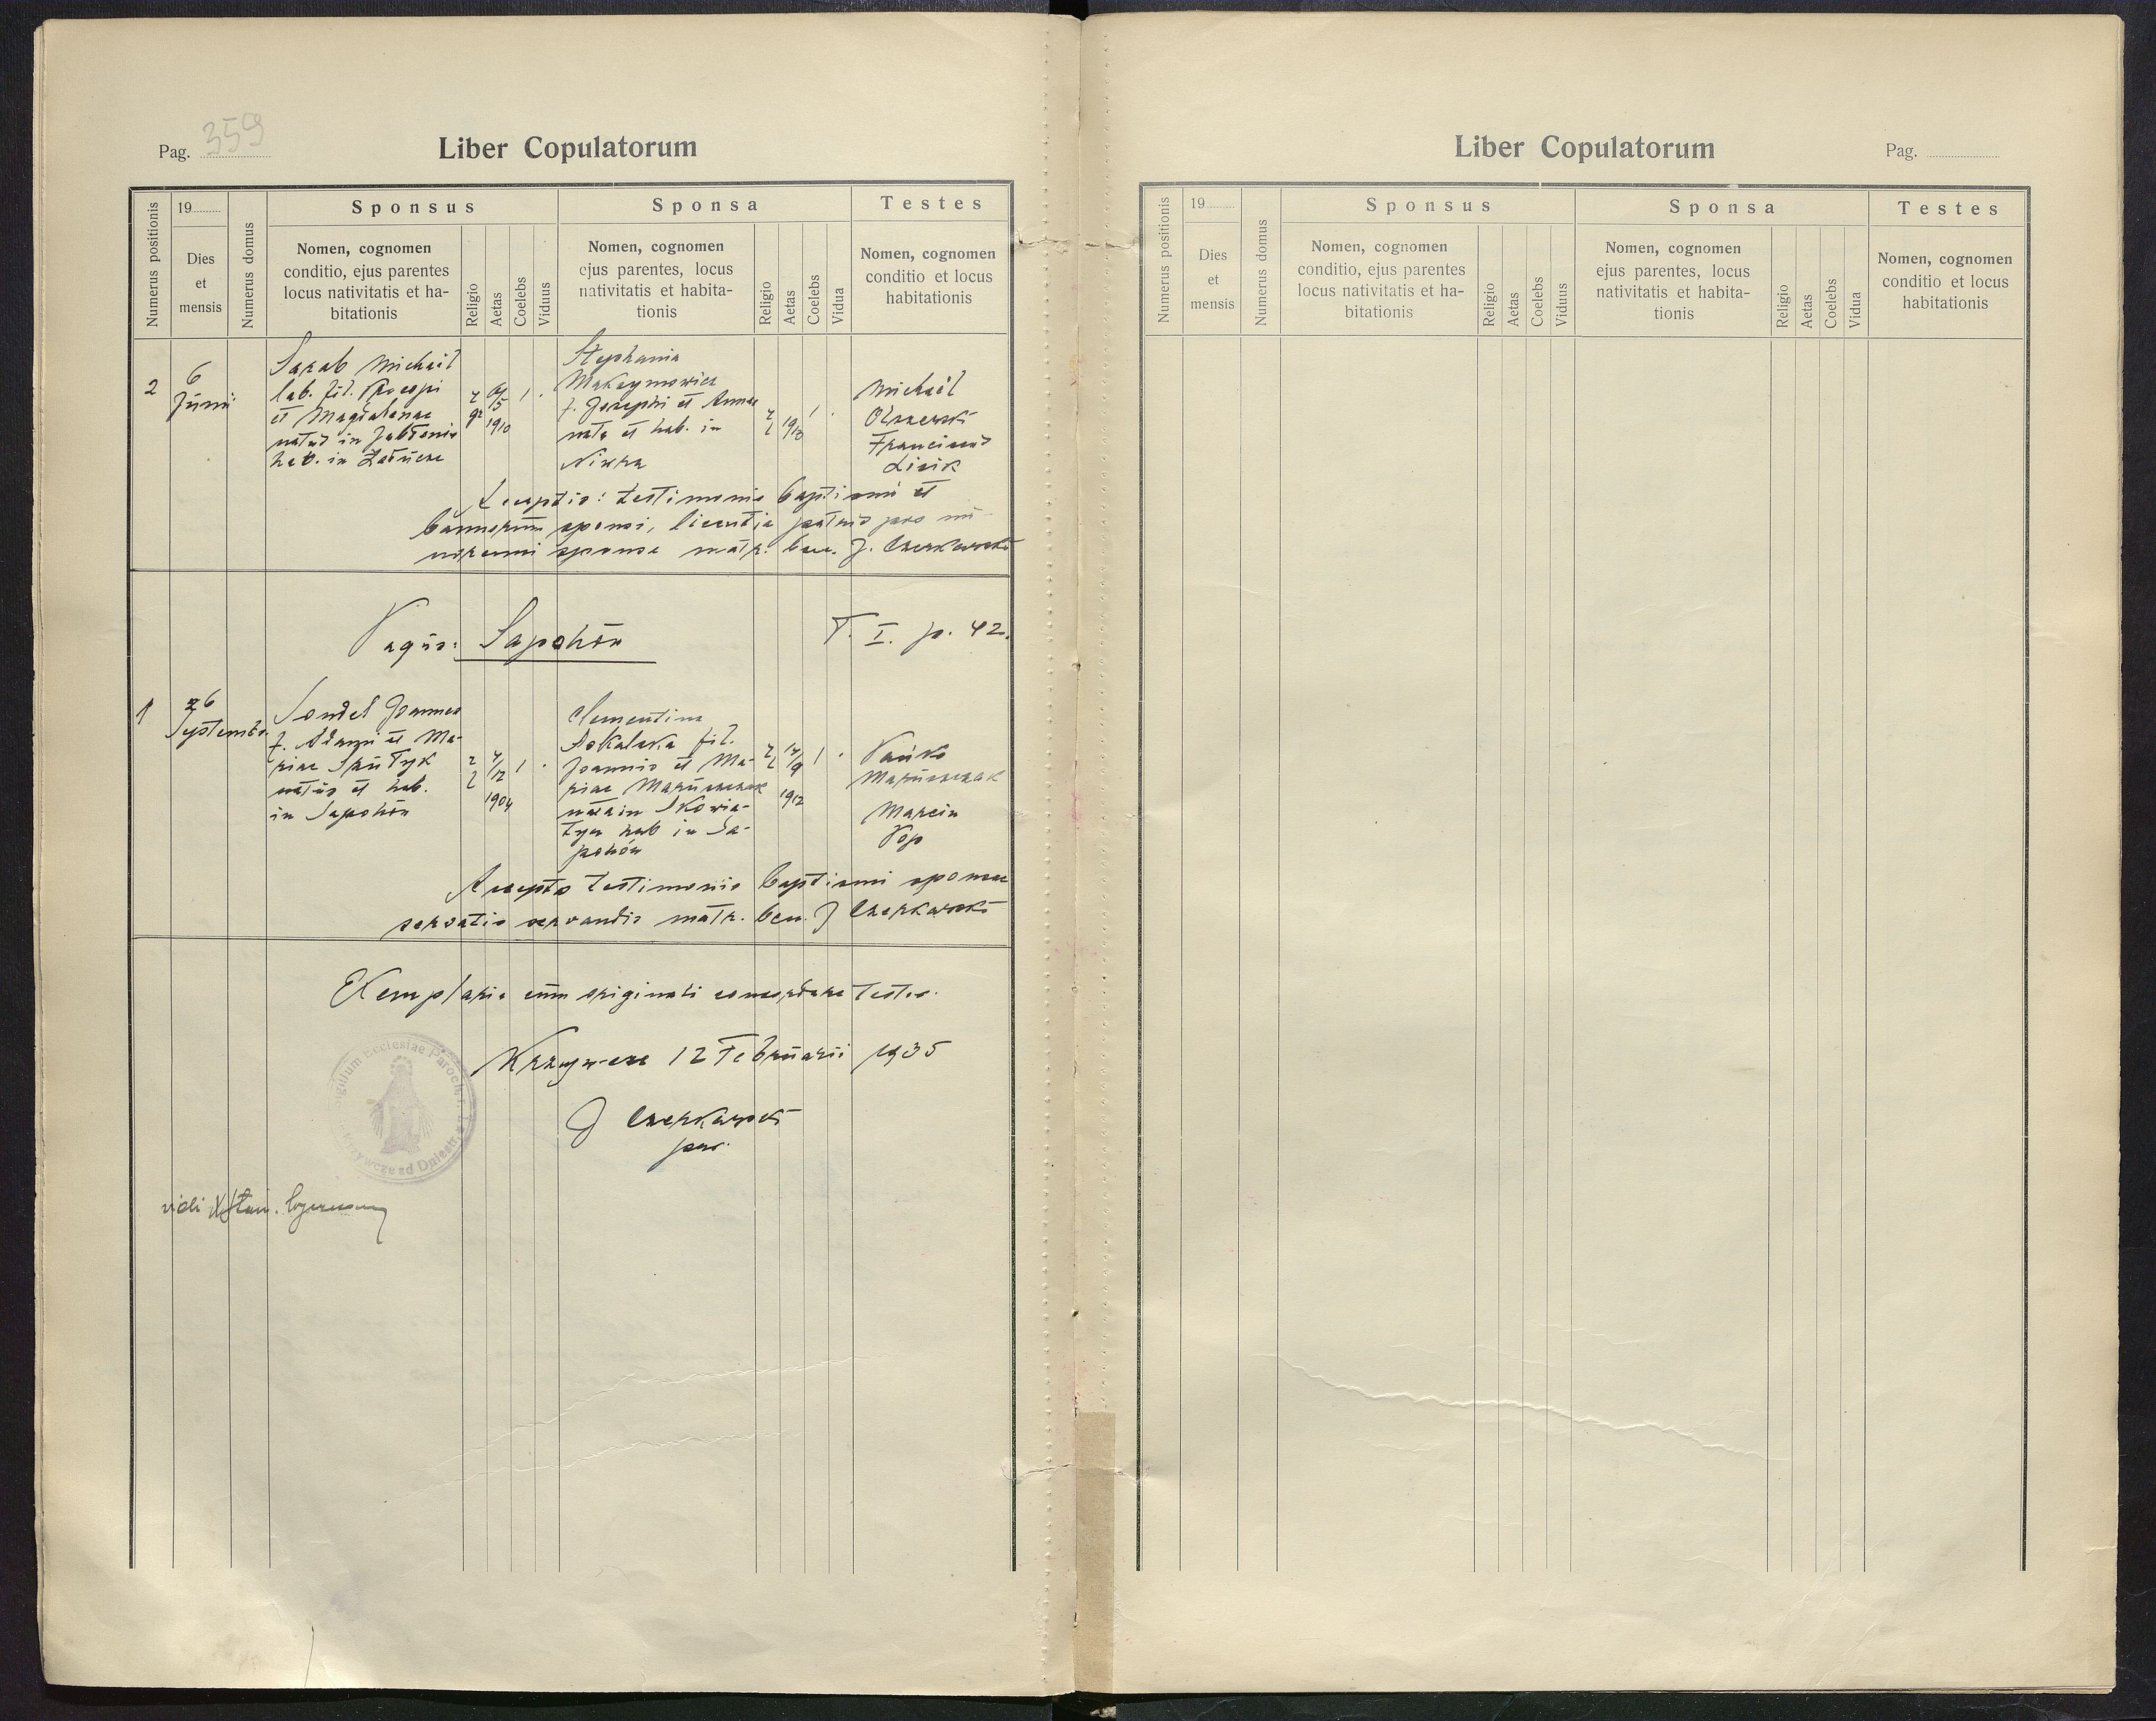 Pag. 359
Liber Copulatorum
Numerus positionis
19
Dies
et
mensis
Numerus domus
Sponsus
Nomen, cognomen
conditio, ejus parentes
locus nativitatis et ha-
bitationis
Religio
Aetas
Coelebs
Viduus
Sponsa
Nomen, cognomen
ejus parentes, locus
nativitatis et habita-
tionis
Religio
Aetas
Coelebs
Vidua
Testes
Nomen, cognomen
conditio et locus
habitationis
2
6
Junii
Michaël
lab. fil. Procopi
et Magdalenae
natus in
hab. in
1910
1
Stephania
Maksymowicz
f. Josephi et Annae
nata et hab. in
Niwra
1
Michaël
Olszewski
Franciscus
Lisik
testimonio baptismi et
bannorum sponsi, licentia patris pro mi-
norenni sponsa matr. ben. J. Czerkawski
Pagus: Sapohów
T. I. p. 42.
1
26
Septembr.
Joannes
f. Adami et Ma-
riae
natus et hab.
in Sapohów
4/12
1904
1
Clementina
fil.
Joannis et Ma-
riae Maruszczak
nata in Skowia-
tyn hab in Sa-
pohów
14/9
1912
1
Maruszczak
Marcin
Pop
Accepto testimonio baptismi sponsae
servatis servandis matr. ben. J Czerkawski
Exemplaria cum originali concordare testor.
Krzywcze 12 Februarii 1935
J Czerkawski
par.
Sigillum Ecclesiae Paroch. r. l.
Krzywcze ad Dniestr.
vidi
Liber Copulatorum
Pag.
Numerus positionis
19
Dies
et
mensis
Numerus domus
Sponsus
Nomen, cognomen
conditio, ejus parentes
locus nativitatis et ha-
bitationis
Religio
Aetas
Coelebs
Viduus
Sponsa
Nomen, cognomen
ejus parentes, locus
nativitatis et habita-
tionis
Religio
Aetas
Coelebs
Vidua
Testes
Nomen, cognomen
conditio et locus
habitationis